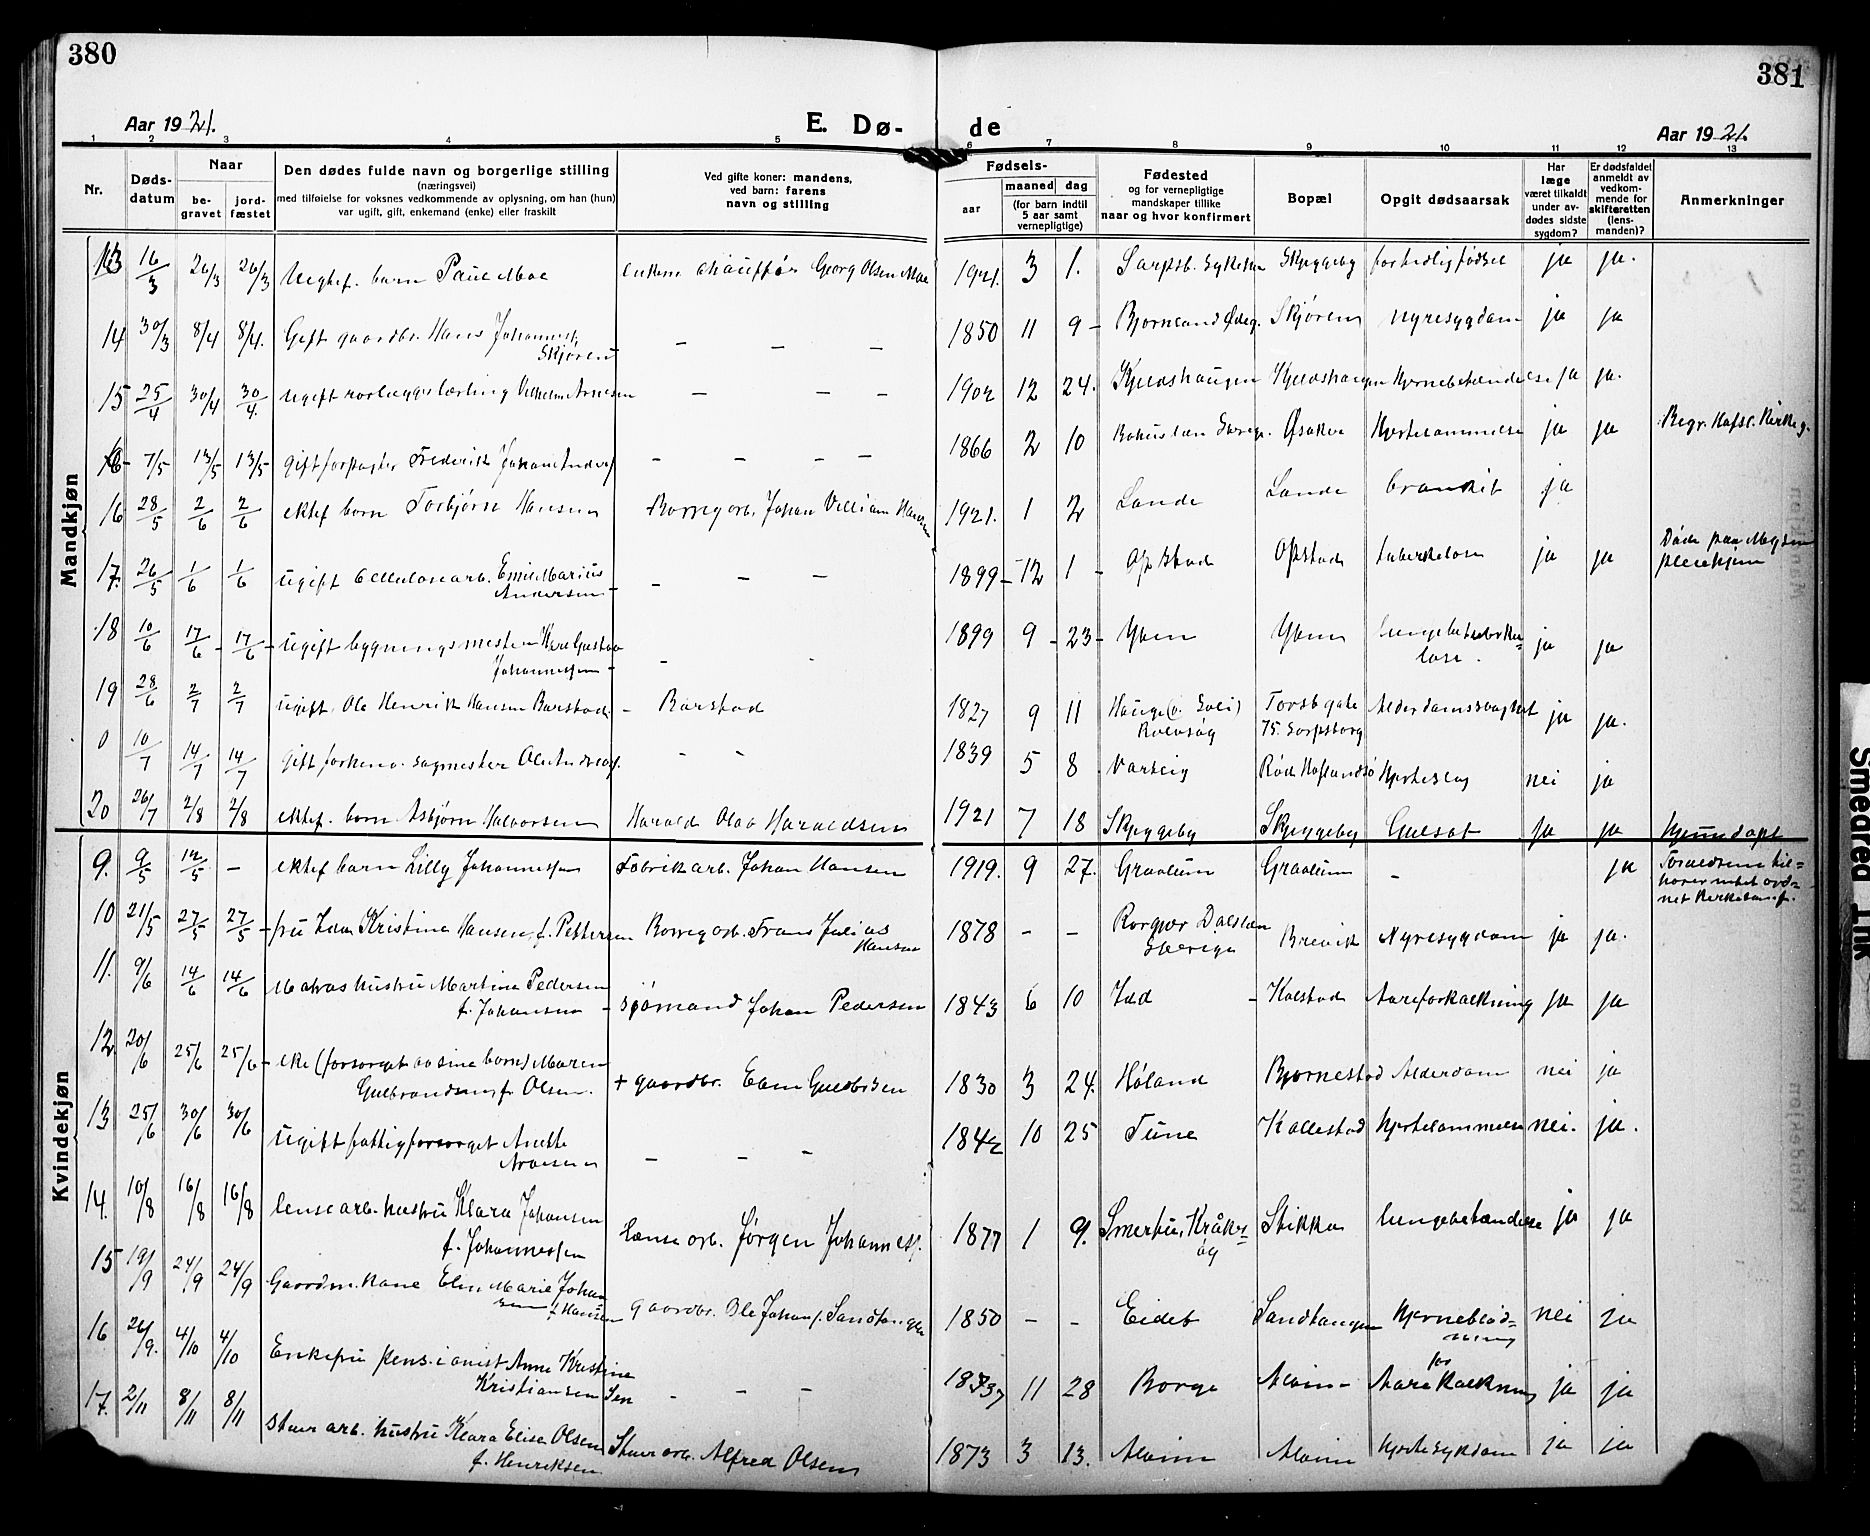 380
381
Aar 1921.
E. Dø-
de
Aar 1921.
1 2 3 4 5 6 7 8 9 10 11 12 13
Nr.
Dødsdatum
Naar
begravet
jordfæstet
Den dødes fulde navn og borgerlige stilling
(næringsvei)
med tilføielse for voksnes vedkommende av oplysning, om han (hun)
var ugift, gift, enkemand (enke) eller fraskilt
Ved gifte koner: mandens,
ved barn: farens
navn og stilling
Fødsels-
aar
maaned
dag
(for barn indtil
5 aar samt
vernepligtige)
Fødested
og for vernepligtige
mandskaper tillike
naar og hvor konfirmert
Bopæl
Opgit dødsaarsak
Har
læge
været tilkaldt
under avdødes sidste
sygdom?
Er dødsfaldet
anmeldt av
vedkommende for
skifteretten
(lensmanden)?
Anmerkninger
Mandkjøn
13 16/3 26/3 26/3 Uegtef. barn Paul Moe chauffør Georg Olsen Moe 1921. 3 1. Sarpsb. Sykehus Skjeggeby fortidlig fødsel ja ja.
14 30/3 8/4 8/4. Gift gaardbr. Hans Johannes. Skjøren - - - 1850 11 9 - Bjørneland Ødeg. Skjøren nyresygdom ja ja
15 25/4 30/4 30/4. ugift rørlæggerlærling Vilhelm Arnesen - - - 1902 12 24. Kjeldshaugen Kjeldshaugen Hjernebetændelse ja ja.
7/5 13/5 13/5 gift forpagter Frederik Johan Anders. - - - - 1866 2 10 Bohuslæn Sverige. Øsaker Hjertelammelse ja ja Begr. Hafsl. Kirkeg.
16 28/5 2/6 2/6 ektef barn Torbjørn Hansen Borregarb. Johan Villiam Hansen 1921. 1 2 Lande Lande bronkit ja
17. 26/5 1/6 1/6 ugift Cellulosearb. Emil Marius Andersen - - - 1899 - 12 1 - Opstad Opstad tuberkulose ja ja Døde paa Mysen pleiehjem
18 10/6 17/6 - 17/6 - ugift bygningsmester Gustav Johannessen - - 1899 9 - 23 - Yven Yven lungetuberkulose. ja ja
19 28/6 2/7 2/7 ugift Ole Henrik Hansen Barstad - Barstad 1827 9 11 Hauge (v. Soli) Rolvsøy Torsbgate 75. Sarpsborg Alderdomssvaghet ja ja.
0 10/7 14/7 14/7 gift forhenv. sagmester Ole Anders. - - 1839 5 8 Varteig Rød Haflandsø Hjerteslag nei ja
20 26/7 2/8 2/8 ektef. barn Asbjørn Halvorsen Harald Olav Haraldsen 1921 7 18 Skjeggeby Skjeggeby Gulsot ja ja hjemmedøpt
Kvindekjøn
9. 9/5 12/5 - ektef barn Lilly Johannessen Fabrikarb. Johan Hansen 1919. 9 27. Graalum Graalum - ja Forældrene tilhører intet ordnet kirkesamf.
10 21/5 27/5 27/5 - fru Ida Kristine Hansen, f. Pettersen Borregarb. Frans Julius Hansen 1878 - - Dalsland Sverige Brevik Nyresygdom ja ja.
11. 9/6 14/6 14/6 Matros hustru Martine Pedersen f. Johansen - sjømand Johan Pedersen 1843 6 10 Idd - Kalstad Aareforkalkning ja ja
12. 20/6 25/6 25/6 - eke (forsørget av sine barn) Maren Gulbrandsen f. Olsen. + gaardbr. Even Guldbrdsen 1830 3 24. Høland Bjørnestad Alderdom nei ja
13 25/6 30/6 30/6 ugift fattigforsørget Anette Arvesen - - - 1842 10 25 Tune Kallestad hjertelammelse nei. ja.
14. 10/8 16/8 16/8 lensearb. hustru Klara Johansen f. Johannessen Lænsearb. Jørgen Johannes. 1877 1 9. Smertu, Kråkerøy Stikka lungebetændelse ja ja
15 19/9 24/9 24/9 Gaardm. kone Elen Marie Johansen f. Hansen gaardbr. Ole Johans. Sandtangen 1850 - - Eidet Sandtangen Hjerneblødning nei ja
16 26/9. 4/10 4/10 Enkefru pensionist Anne Kristine Kristiansen - - - 1837 11 28 Borge Alvim - Aareforkalkning ja ja
17. 2/11 8/11 8/11 Stuerarb. hustru Klara Elise Olsen f. Henriksen Stuerarb. Alfred Olsen 1873 3 13. Alvim Alvim Hjertesykdom ja ja
Smeared Ink